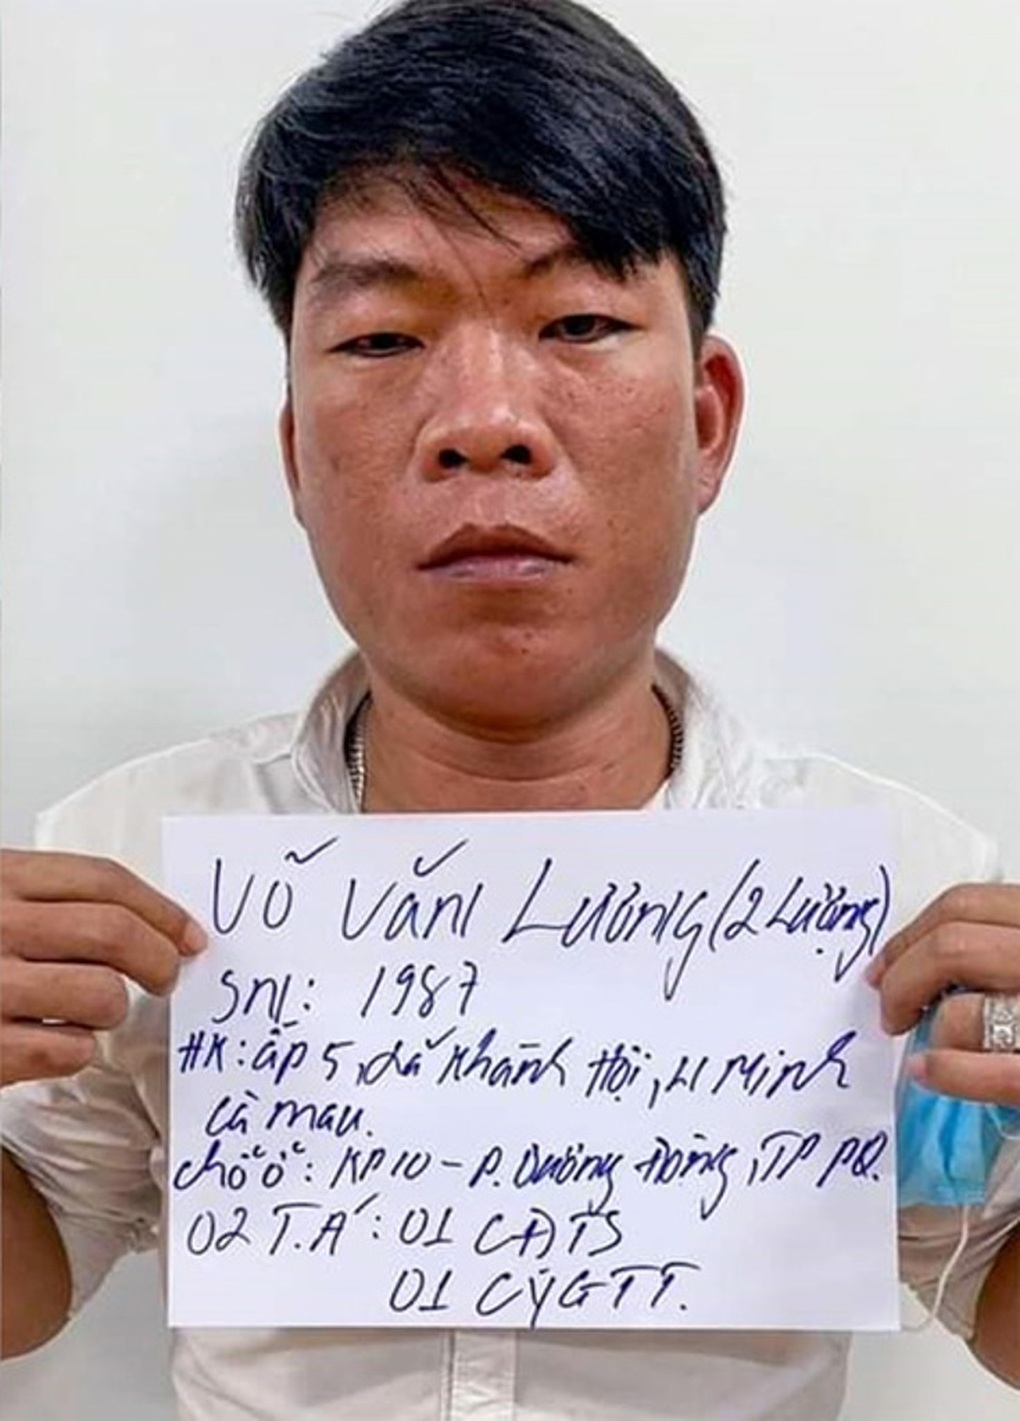 Võ Văn Lương (2 Lượng)
SN: 1987
HK: ấp 5, xã Khánh Hội, U Minh
Cà Mau.
chỗ ở: KP 10 - P. Dương Đông, TP PQ.
02 T.Á: 01 CĐTS
01 CYGTT.